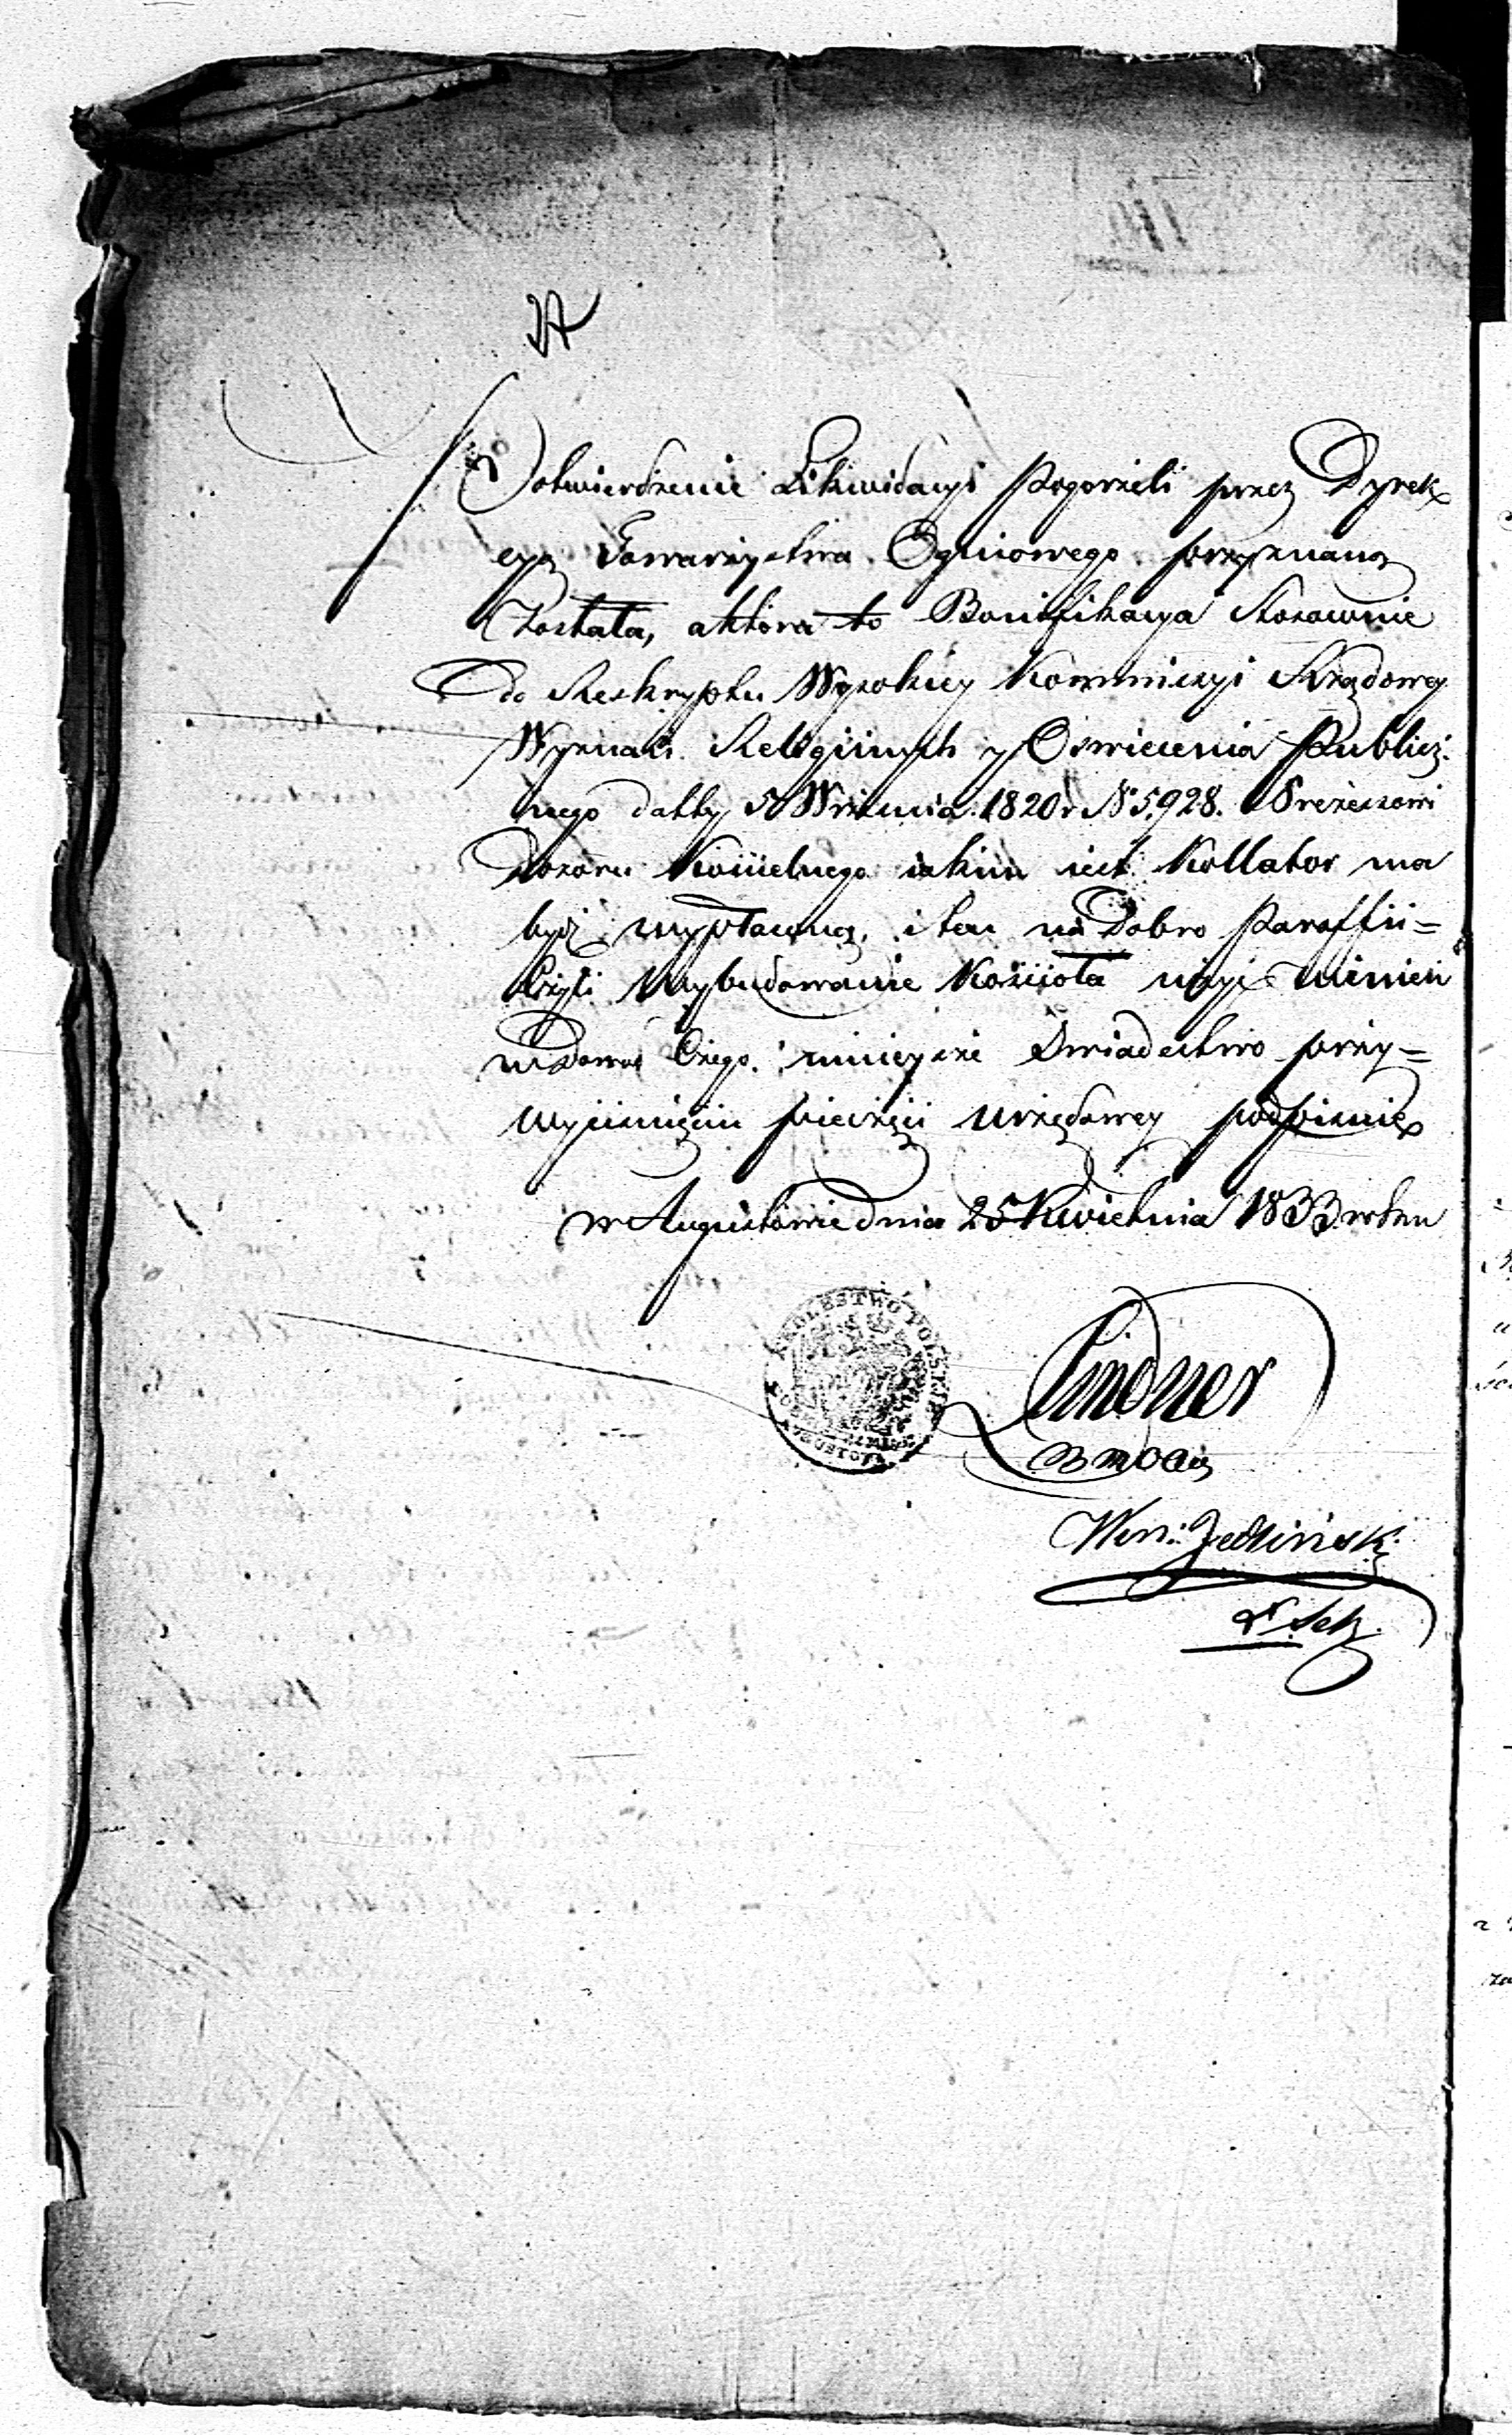 Potwierdzenie Likwidacyi Pogorzeli przez Dyrek
cyą Towarzystwa Ogniowego przyznaną
Została, aktóra to Bonifikacya Stosownie
do Reskryptu Wysokiey Kommissyi Rządowey
Wyznań Religiinych y Oswiecenia Publicz.
nego datty 5 Września 1820 r N 5,928. Prezessowi
Dozoru Kościelnego iakim iest Kollator ma
bydź wypłaconą, i ten na Dobro Paraffii=
Czyli Wybudowanie Kościoła użyć winien
na Dowod Czego ninieysze Swiadectwo przy=
wyciśnięciu pieczęci urzędowey podpisuię
w Augustowie dnia 25 Kwietnia 1833 roku
KROLESTWO POLSKIE
Lindner
Win: Jedliński
Sek.